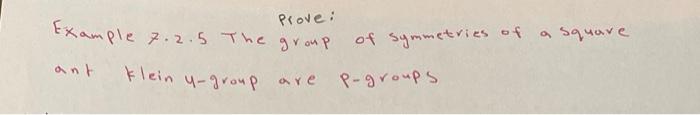 Prove:
Example 7.2.5 The group of symmetries of a square
ant klein 4-group are p-groups